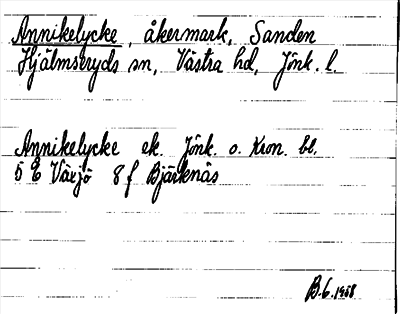 Annikelycke, åkermark, Sanden
Hjälmseryds sn, Västra hd, Jönk. l.
Annikelycke ek. Jönk. o. Kron. bl.
5 E Växjö 8 f Bjärknäs
B.G. 1968